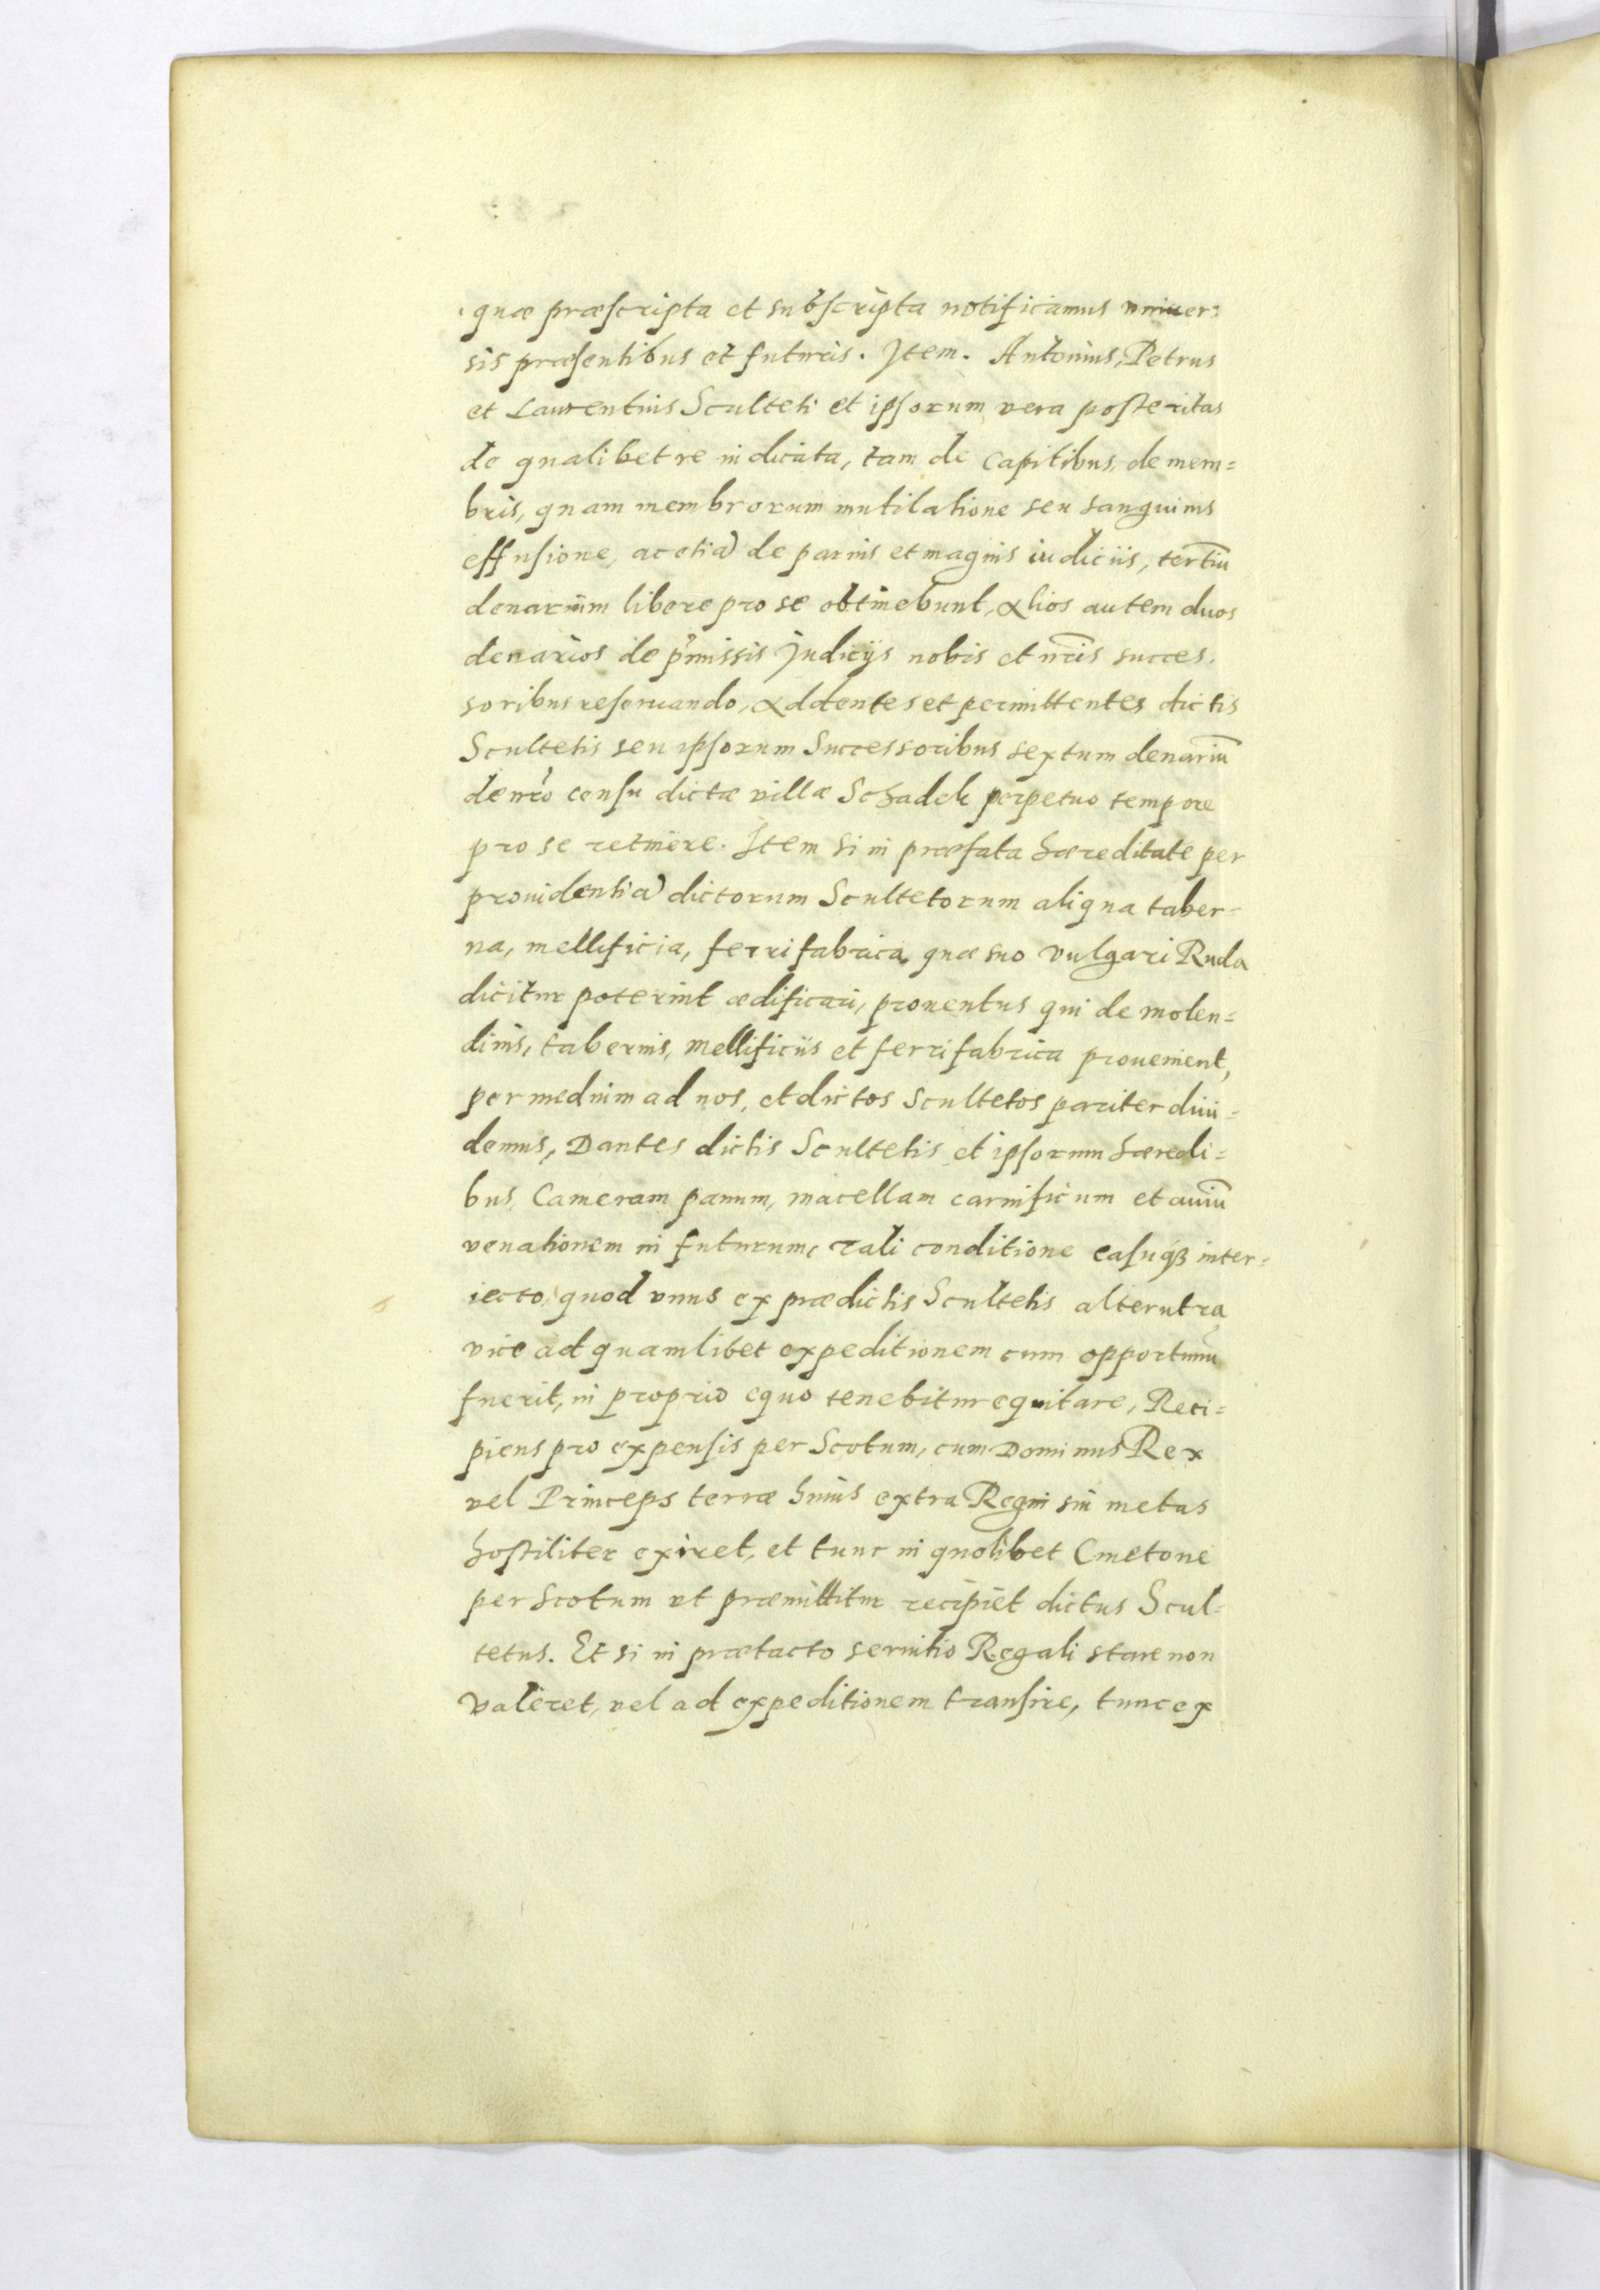 quæ præscripta et subscripta notificamus vniuer:
sis præsentibus et futuris. Item. Antonius, Petrus
et Laurentius Sculteti et ipsorum vera posteritas
de qualibet re iudicata, tam de capitibus, de mem=
bris, quam membrorum mutilatione seu sanguinis
effusione, ac etiã de paruis et magnis iudiciis, tertiũ
denarium libere pro se obtinebunt, Alios autem duos
denarios de p̃missis Judicijs nobis et nr̃is succes.
soribus reseruando, Addentes et permittentes dictis
Scultetis seu ipsorum Successoribus sextum denariũ
de nr̃o censu dictæ villæ Schadek perpetuo tempore
pro se retinere. Item si in præfata hæreditate per
prouidentiã dictorum Scultetorum aliqua taber=
na, mellificia, ferrifabrica, quæ suo vulgari Ruda
dicitur poterint ædificari, prouentus qui de molen=
dinis, tabernis, mellificiis et ferrifabrica prouenient,
per medium ad nos, et dictos Scultetos pariter diui=
demus, Dantes dictis Scultetis et ipsorum hæredi=
bus, Cameram panum, macellam carnificum et auiũ
venationem in futurum, tali conditione casuq́ꝫ inter=
iecto, quod vnus ex prædictis Scultetis alterutra
vice ad quamlibet expeditionem cum opportunũ
fuerit, in proprio equo tenebitur equitare, Reci=
piens pro expensis per Scotum, cum Dominus Rex
vel Princeps terræ huius extra Regni sui metas
hostiliter exiret, et tunc in quolibet Cmetone
per Scotum vt præmittitur recipiet dictus Scul=
tetus. Et si in prætacto seruitio Regali stare non
valeret, vel ad expeditionem transire, tunc ex